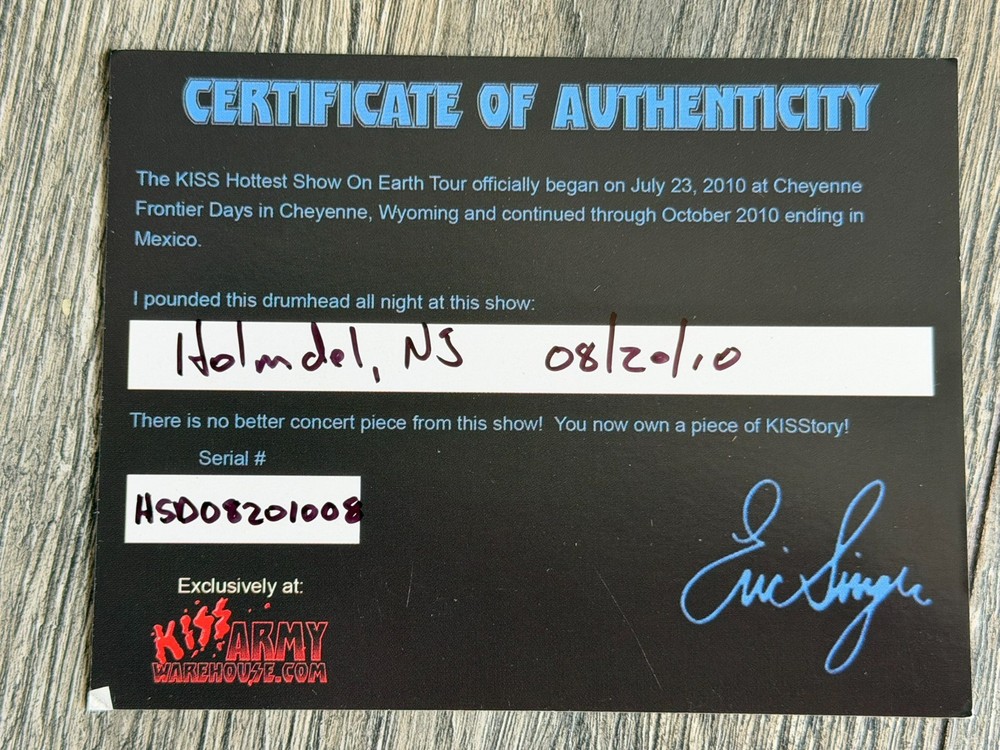 CERTIFICATE OF AUTHENTICITY
The KISS Hottest Show On Earth Tour officially began on July 23, 2010 at Cheyenne
Frontier Days in Cheyenne, Wyoming and continued through October 2010 ending in
Mexico.
I pounded this drumhead all night at this show:
Holmdel, NJ 08/20/10
There is no better concert piece from this show! You now own a piece of KISStory!
Serial #
HSD08201008
Eric Singer
Exclusively at:
KISS ARMY
WAREHOUSE.COM